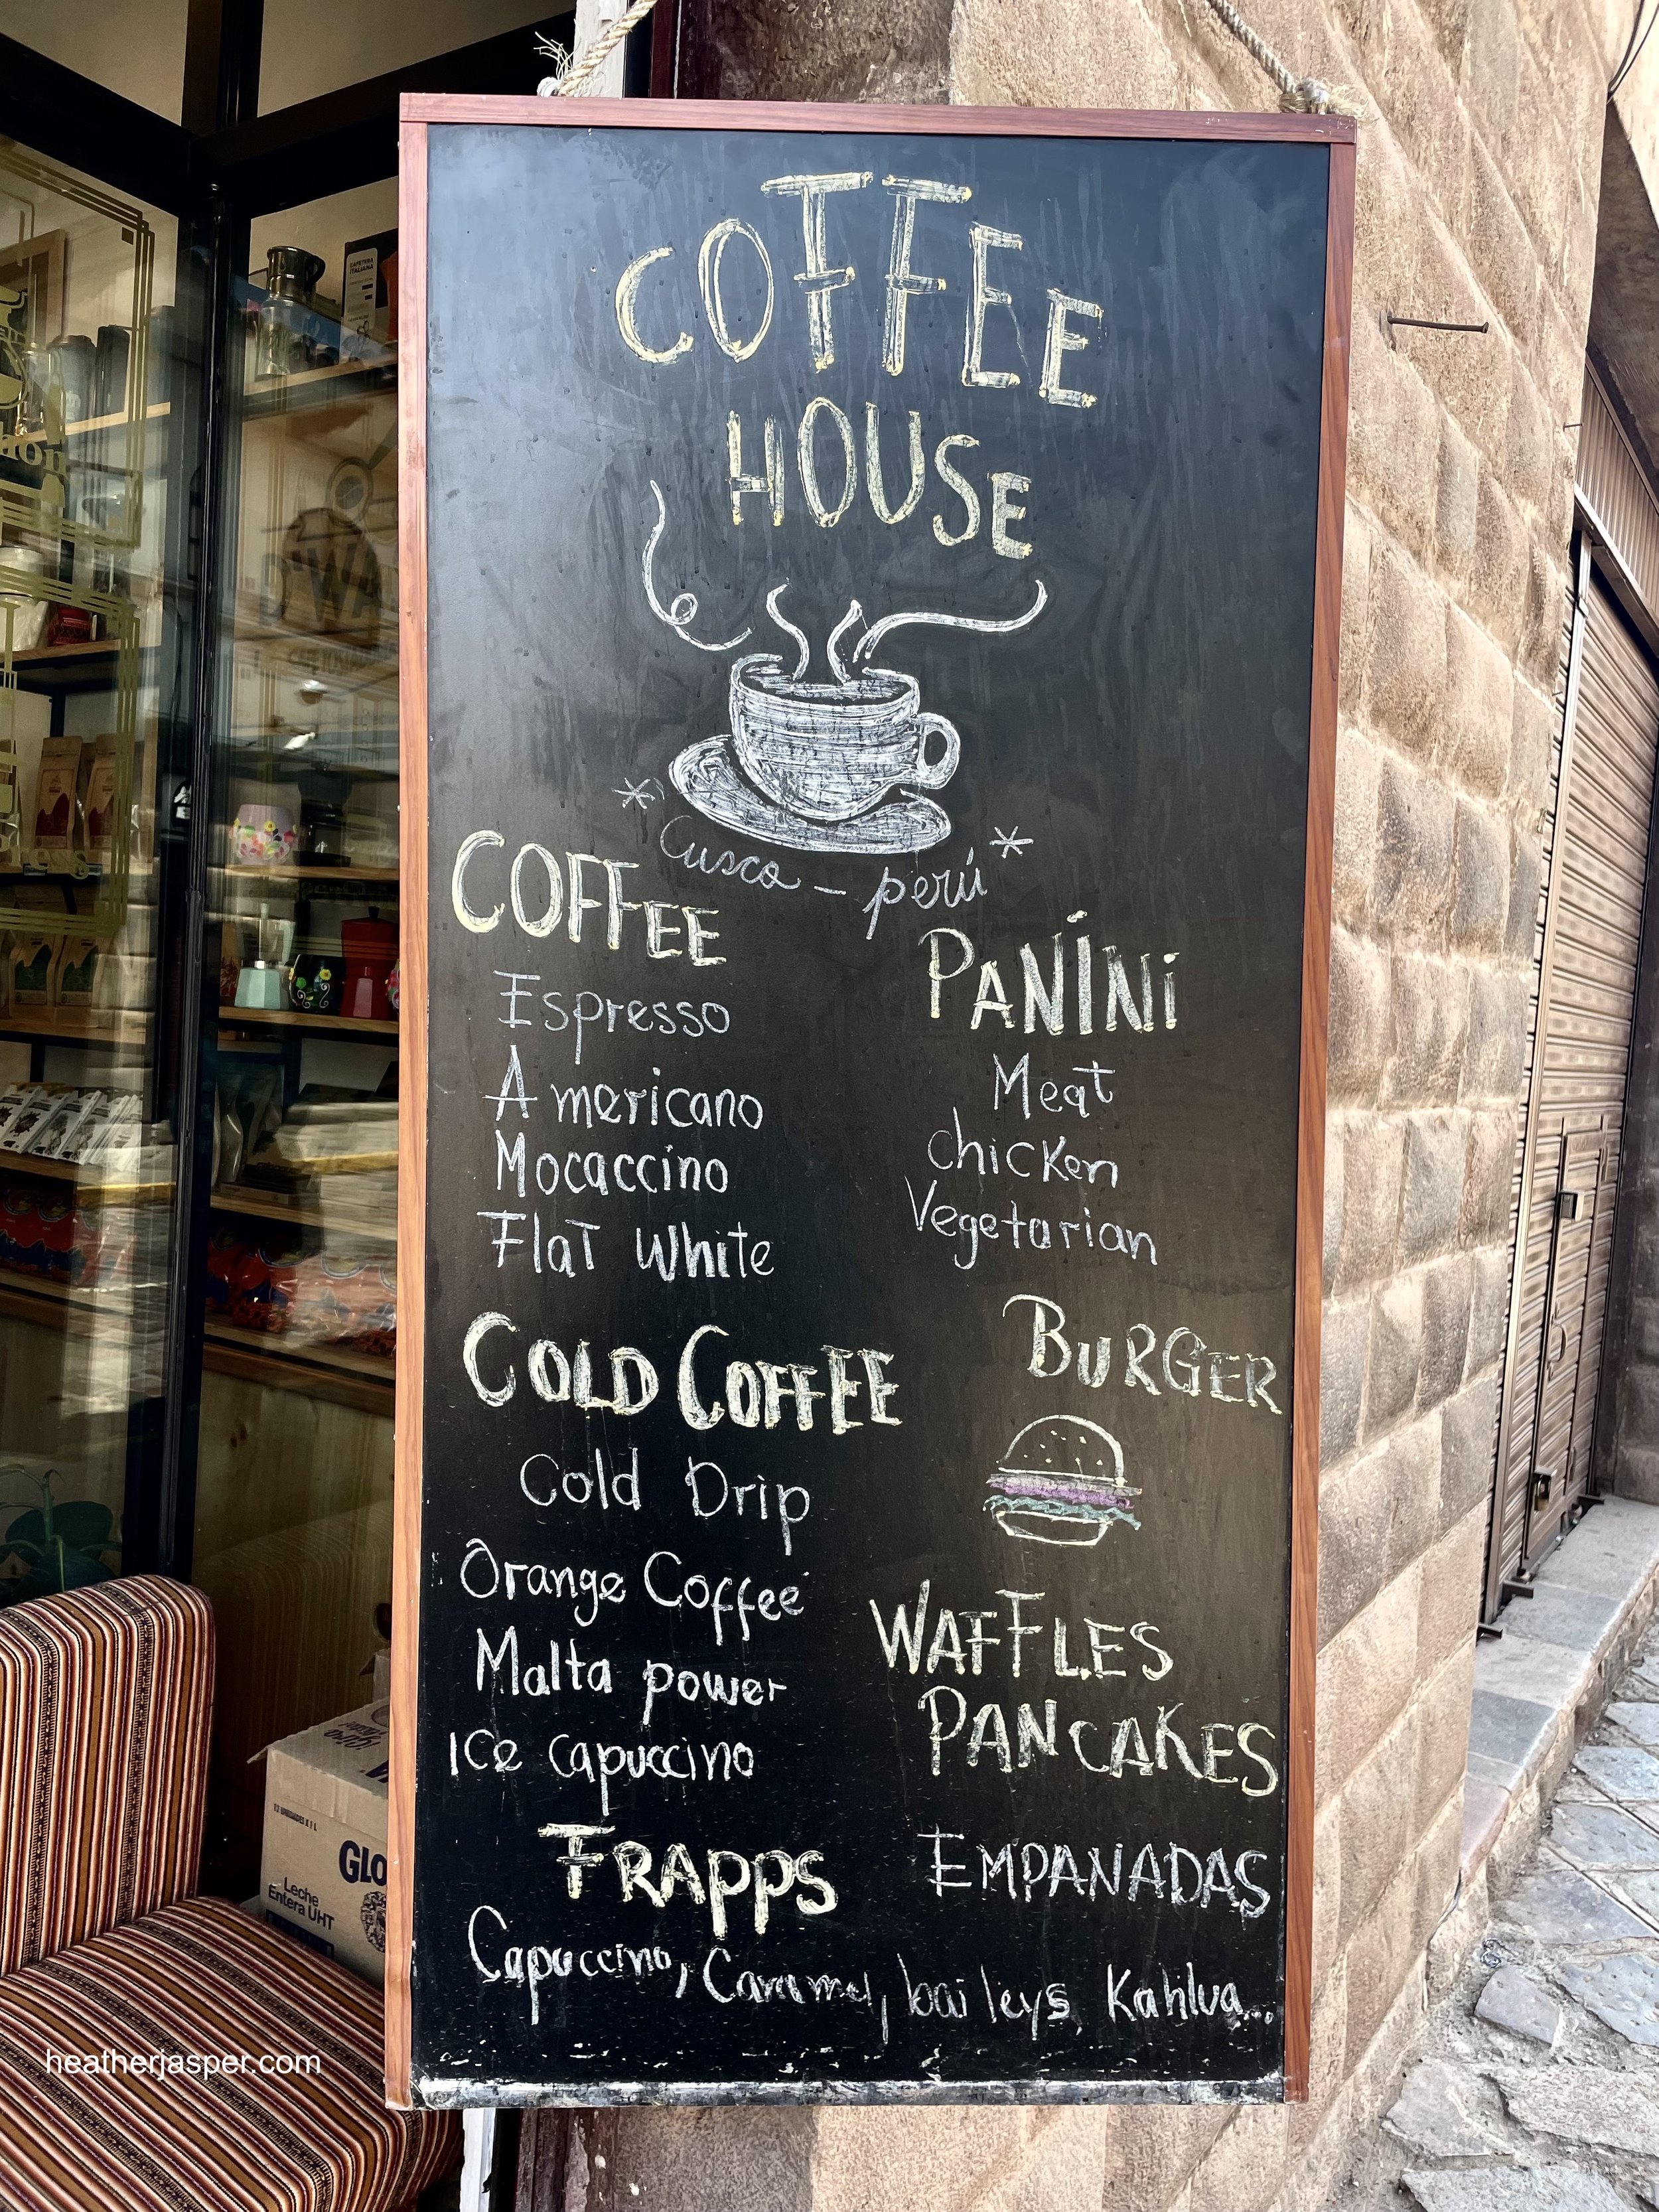 COFFEE
HOUSE
Cusco - perú
COFFEE
Espresso
Americano
Mocaccino
Flat White
COLD COFFEE
Cold Drip
Orange Coffee
Malta power
Ice capuccino
FRAPPS
Capuccino, Caramel, baileys, Kahlua...
PANINI
Meat
chicken
Vegetarian
BURGER
WAFFLES
PANCAKES
EMPANADAS
CAFETERA
ITALIANA
D'WA
12 UNIDADES X 1 L
GLO
Leche
Entera UHT
heatherjasper.com